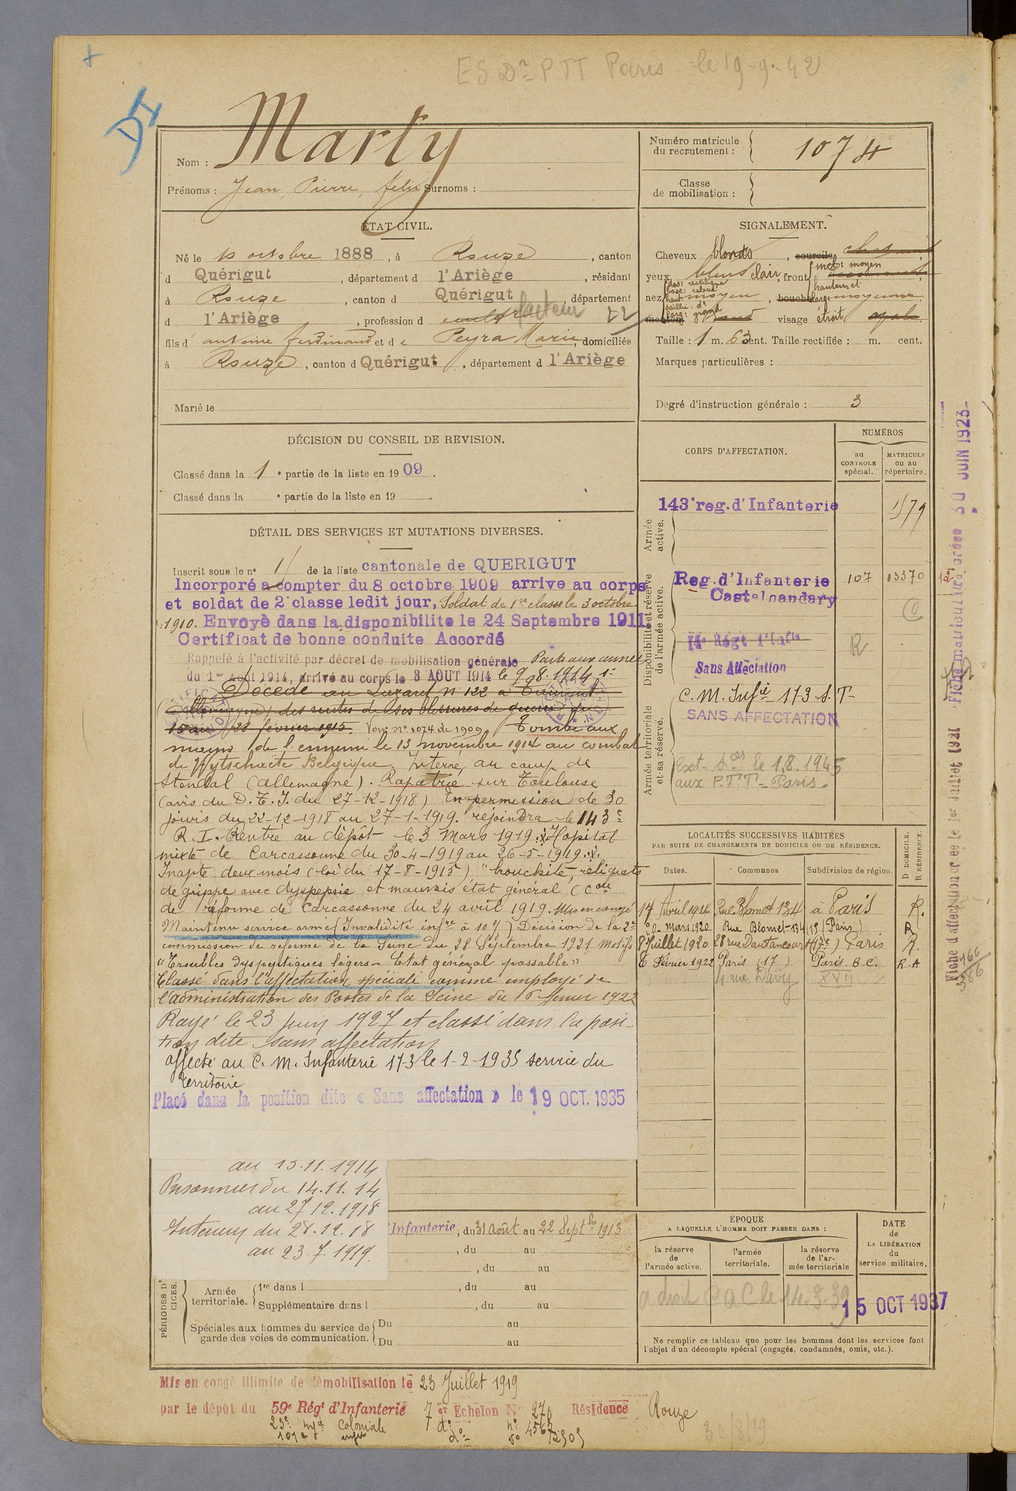 ES Dr PTT Paris le 19-9-42
Nom : Marty
Prénoms : Jean Pierre, felix Surnoms :
Numéro matricule
du recrutement : 1074
Classe
de mobilisation :
ÉTAT CIVIL.
Né le 10 octobre 1888, à Rouze, canton
d Quérigut, département d l'Ariège, résidant
à Rouze, canton d Quérigut, département
d l'Ariège, profession d cult facteur 22
fils d' antoine ferdinand et d e Peyra Marie, domiciliés
à Rouze, canton d Quérigut, département d l'Ariège
Marié le
SIGNALEMENT.
Cheveux blonds, sourcils
yeux bleus clair, front moyen
nez moyen, bouche moyenne
menton visage étroit ovale
Taille : 1 m. 63 cent. Taille rectifiée : m. cent.
Marques particulières :
Degré d'instruction générale : 3
DÉCISION DU CONSEIL DE REVISION.
Classé dans la 1e partie de la liste en 1909.
Classé dans la e partie de la liste en 19
DÉTAIL DES SERVICES ET MUTATIONS DIVERSES.
Inscrit sous le n° 1 de la liste cantonale de QUERIGUT
Incorporé a compter du 8 octobre 1909 arrive au corps
et soldat de 2e classe ledit jour, Soldat de 1re classe le 3 octobre
1910. Envoyé dans la disponibilite le 24 Septembre 1911.
Certificat de bonne conduite Accordé
Rappelé à l'activité par décret de mobilisation générale
du 1er Août 1914, arrivé au corps le 3 AOUT 1914 Parti aux armées le 7-8-1914
Décédé au Lazaret n° 122 à
(Allemagne) des suites de ses blessures de guerre du
15 au 28 février 1915. Voir n° 1074 de 1909 Tombé aux
mains de l'ennemi le 13 novembre 1914 au combat
de Wytschaete Belgique, Interné au camp de
Stendal (Allemagne). Rapatrié sur Toulouse
(avis du D. T. I. du 27-12-1918) En permission de 30
jours du 22-12-1918 au 27-1-1919. rejoindra le 143e
R. I. Rentré au dépôt le 3 Mars 1919. Hopital
mixte de Carcassonne du 30-4-1919 au 26-5-1919.
Inapte deux mois (loi du 17-8-1915) "bronchite, reliquats
de grippe avec dyspepsie et mauvais état général (Con
de réforme de Carcassonne du 24 avril 1919. Mis en congé
Maintenu service armé (Invalidité infre à 10%) Décision de la 2e
commission de réforme de la Seine du 28 Septembre 1921 Motifs
"Troubles dyspeptiques légers - Etat général passable"
Classé dans l'affectation spéciale comme employé de
l'administration des Postes de la Seine du 6 février 1922
Rayé le 23 juin 1927 et classé dans la posi-
tion dite sans affectation
affecté au C. M. Infanterie 173 le 1-2-1935 service du
Territoire
Placé dans la position dite « Sans affectation » le 19 OCT. 1935
au 13.11.1914
Prisonnier du 14.11.14
au 27 12.1918
Intérieur du 28.12.18
au 23.7.1919.
Infanterie, du 31 Août au 22 Septbre 1913
, du au
, du au
PÉRIODES D'
CICES.
Armée
territoriale.
1re dans l , du au
Supplémentaire dans l , du au
Spéciales aux hommes du service de
garde des voies de communication.
Du au
Du au
CORPS D'AFFECTATION.
NUMÉROS
au
CONTROLE
spécial.
MATRICULE
ou au
répertoire.
Armée
active.
143e reg. d'Infanterie 1179
Disponibilité et réserve
de l'armée active.
Reg. d'Infanterie 107 03370
Castelnaudary
Sans Affectation R
Armée territoriale
et sa réserve.
C. M. Infie 173 S. T-
SANS AFFECTATION
le 1.8.1945
aux P.T.T- Paris.
LOCALITÉS SUCCESSIVES HABITÉES
PAR SUITE DE CHANGEMENTS DE DOMICILE OU DE RÉSIDENCE.
Dates. Communes Subdivision de région.
D DOMICILE.
R RÉSIDENCE.
17 Avril 1914 Rue Blomet 134 à Paris R.
20. mars 1920 Rue Blomet-134 15 (Paris) R
8 Juillet 1920 28 rue Dautancourt (17e) Paris R.
6 Février 1922 Paris (17) Paris B.C. R.A
rue Davy XVII
ÉPOQUE
A LAQUELLE L'HOMME DOIT PASSER DANS :
la réserve
de
l'armée active.
l'armée
territoriale.
la réserve
de l'ar-
mée territoriale
DATE
de
LA LIBÉRATION
du
service militaire.
a droit C a C le 14-3-39
15 OCT 1937
Ne remplir ce tableau que pour les hommes dont les services font
l'objet d'un décompte spécial (engagés, condamnés, omis, etc.).
Mis en congé illimité de démobilisation le 23 Juillet 1919
par le dépot du 59e Régt d'Infanterie 7er Echelon N° 270 Résidence Rouze
Coloniale
30/8/19
Fiche matriculaire créée 30 JUIN 1923
Fiche d'affectation créée le 1er Juillet 1921